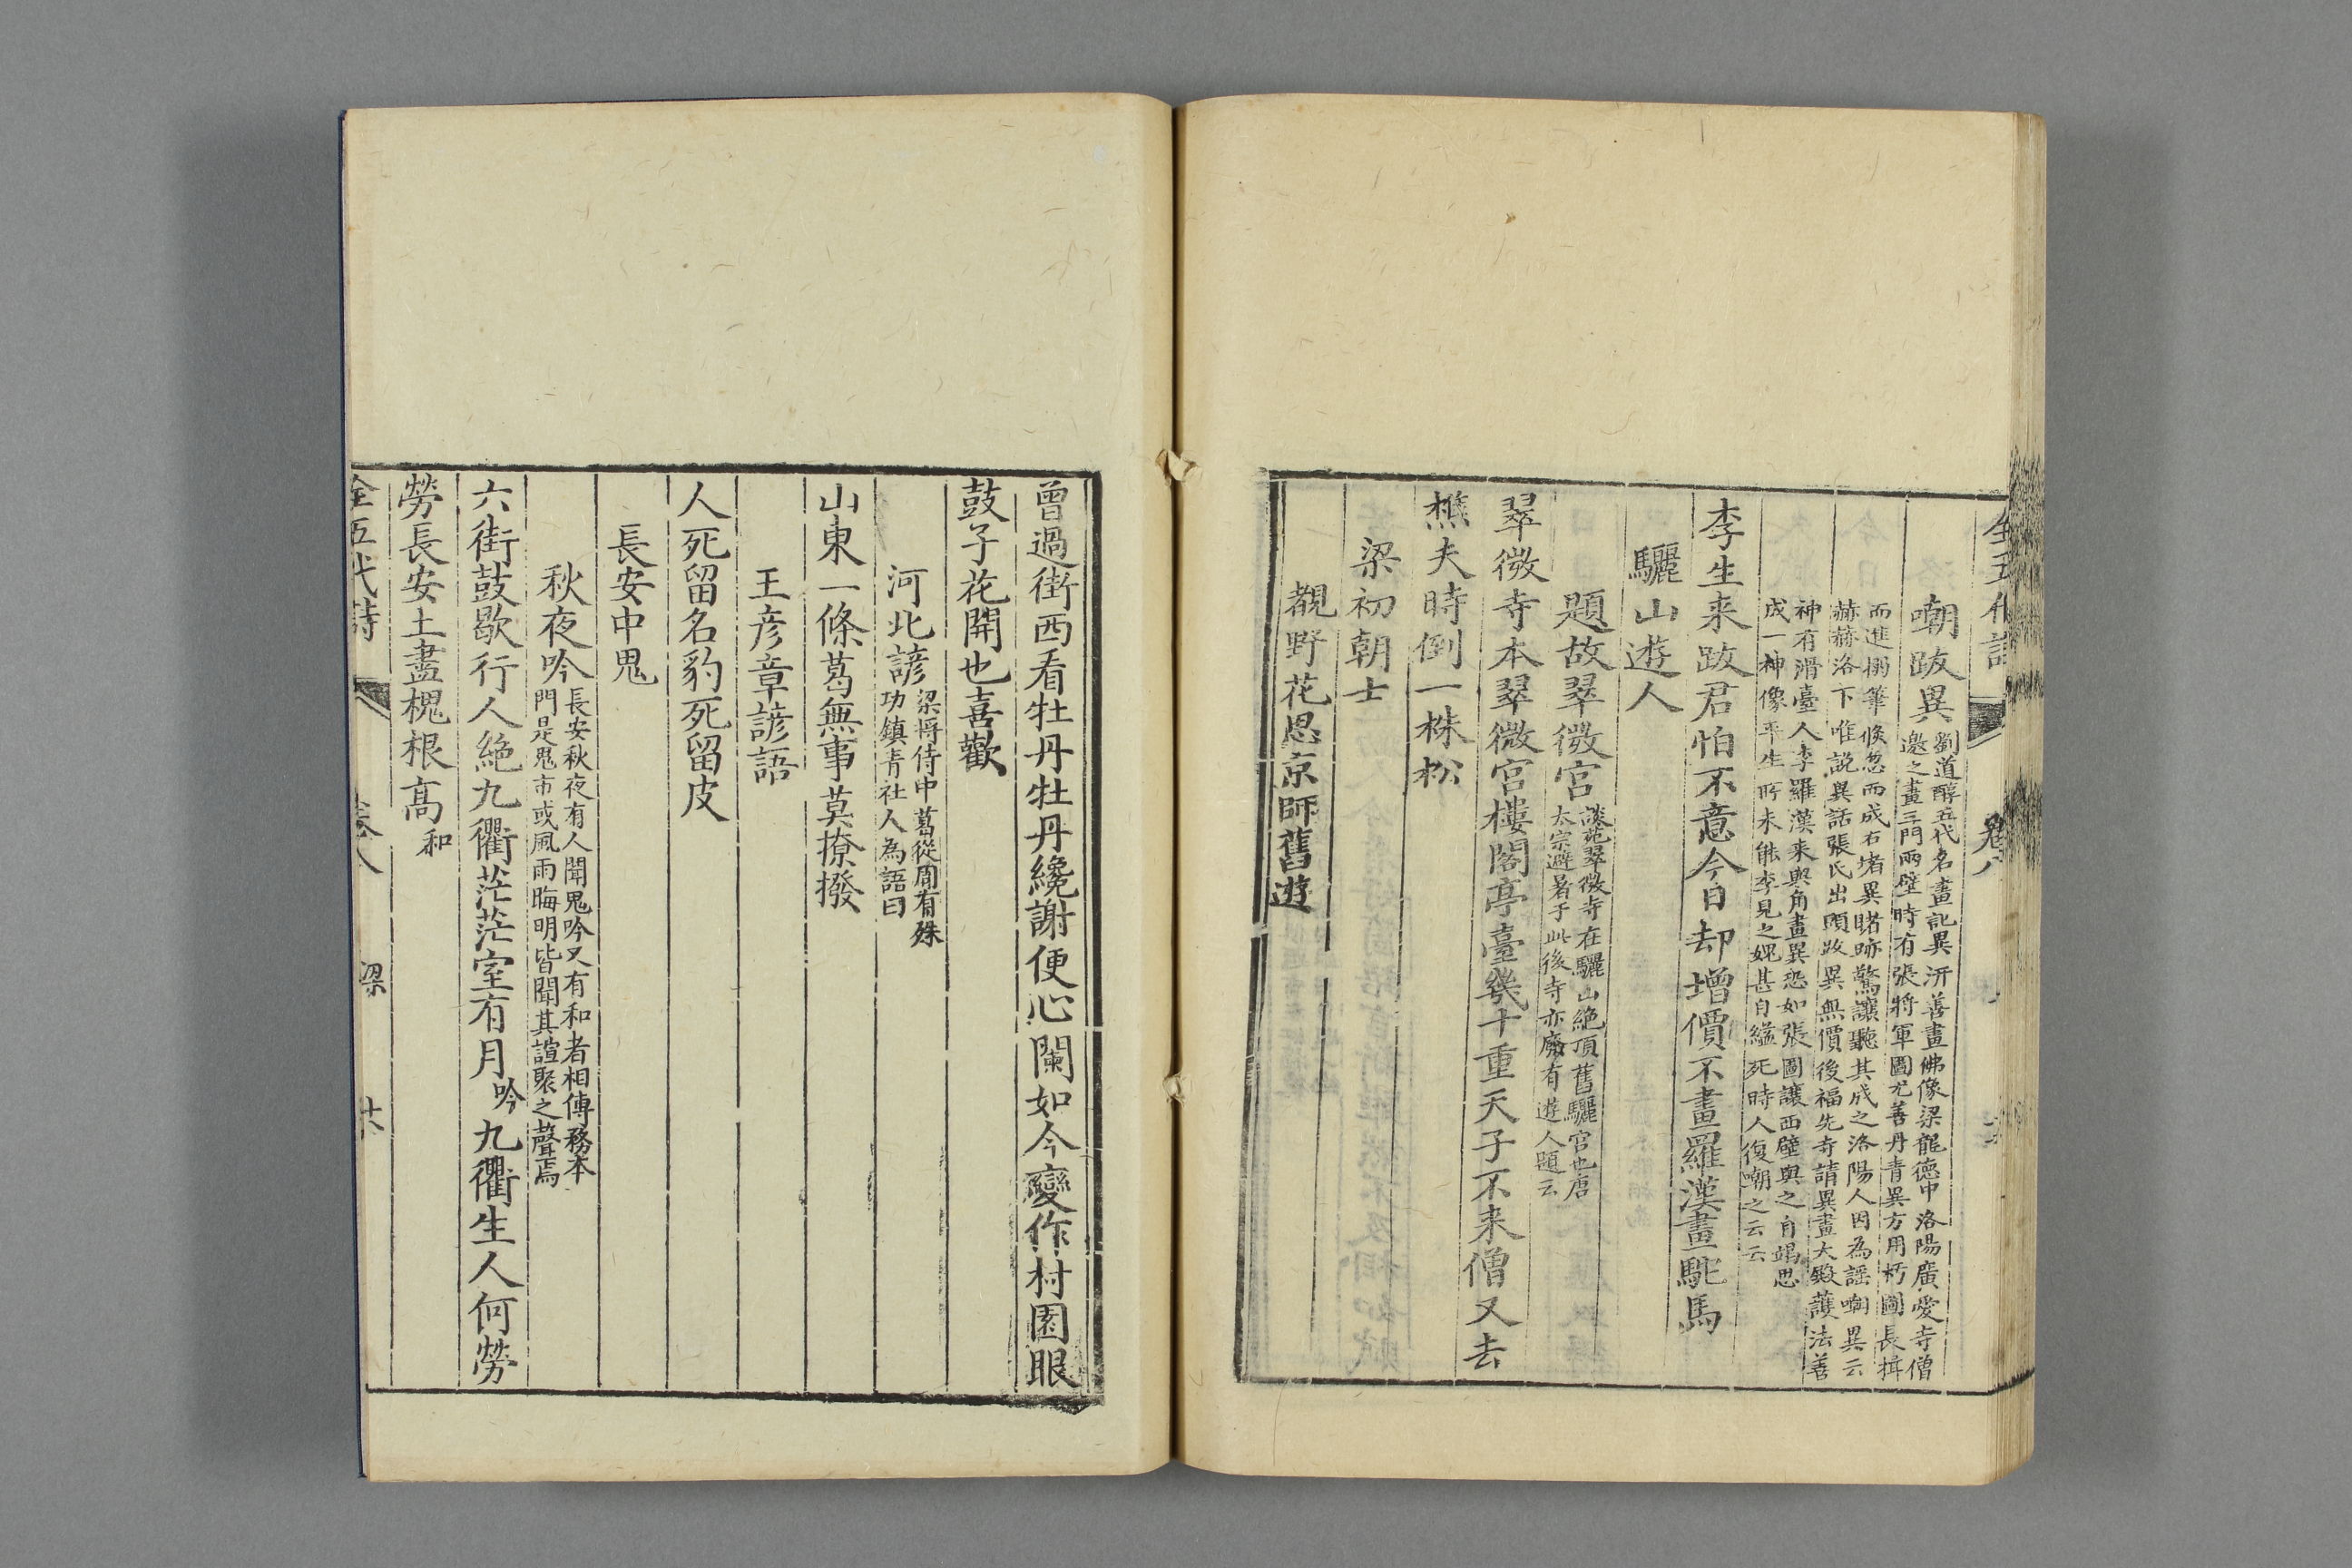 全五代詩 卷八
嘲跋異 劉道醇五代名畫記異汧善畫佛像梁龍德中洛陽廣愛寺僧
邀之畫三門兩壁時有張將軍圖尤善丹青異方用朽圖長揖
而進搦筆倏忽而成右堵異睹跡驚讓聽其成之洛陽人因為謡嘲異云
赫赫洛下唯説異話張氏出頭跋異無價後福先寺請異畫大殿護法善
神有滑臺人李羅漢来與角畫異恐如張圖讓西壁與之自竭思
成一神像平生所未能李見之媿甚自縊死時人復嘲之云云
李生来跋君怕不意今日却增價不畫羅漢畫駞馬
驪山遊人
題故翠微宮 談苑翠微寺在驪山絶頂舊驪宮也唐
太宗避暑于此後寺亦廢有遊人題云
翠微寺本翠微宮樓閣亭臺幾十重天子不来僧又去
樵夫時倒一株松
梁初朝士
觀野花思京師舊遊
曾過街西看牡丹牡丹纔謝便心闌如今變作村園眼
鼓子花開也喜歡
河北諺 梁將侍中葛從周有殊
功鎮青社人為語曰
山東一條葛無事莫撩撥
王彦章諺語
人死留名豹死留皮
長安中鬼
秋夜吟 長安秋夜有人聞鬼吟又有和者相傳務本
門是鬼市或風雨晦明皆聞其諠聚之聲焉
六街鼓歇行人絶九衢茫茫室有月吟九衢生人何勞
勞長安土盡槐根高和
全五代詩 卷八 梁